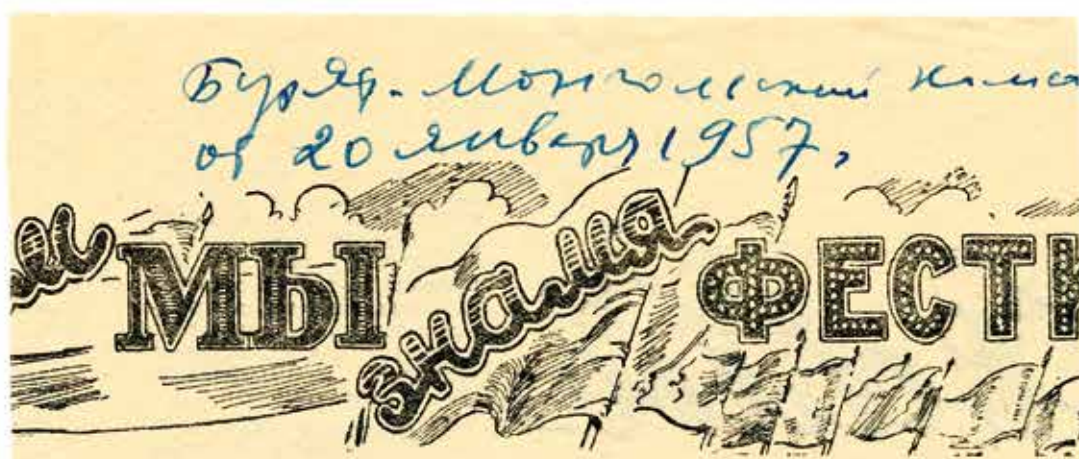 Бурят-Монгольский
от 20 января 1957,
МЫ знамя ФЕСТ